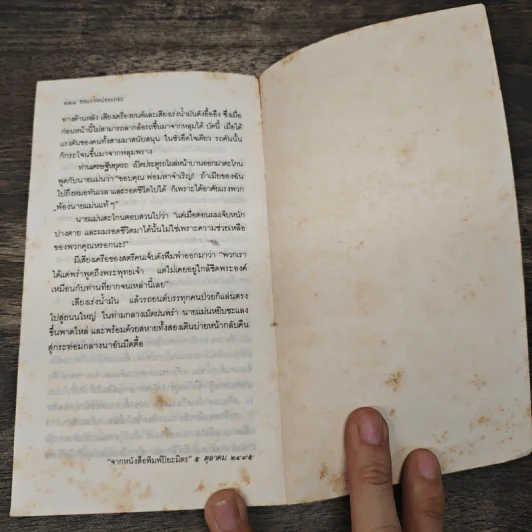 ๑๑๔ ขอแรงหน่อยเถอะ
ทางด้านหลัง เสียงเครื่องยนต์และเสียงเร่งน้ำมันดังอื้ออึง ซึ่งเมื่อ
ก่อนหน้านี้ไม่สามารถลากล้อรถขึ้นมาจากหลุมได้ บัดนี้ เมื่อได้
แรงดันของคนทั้งสามมาสนับสนุน ในชั่วอึดใจเดียว รถคันนั้น
ก็กระโจนขึ้นมาจากหลุมพราง
ท่านเศรษฐีหยุดรถ เปิดประตูรถโผล่หน้าบานออกมาตะโกน
พูดกับนายแม่นว่า “ขอบคุณ พ่อมหาจำเริญ! ถ้าเมียของฉัน
ไปถึงหมอทันเวลาและรอดชีวิตไปได้ ก็เพราะได้อาศัยแรงพวก
พ้องนายแม่นแท้ ๆ”
นายแม่นตะโกนตอบสวนไปว่า “แต่เมื่อตอนผมเจ็บหนัก
ปางตาย และผมรอดชีวิตมาได้นั้นไม่ใช่เพราะความช่วยเหลือ
ของพวกคุณหรอกนะ!”
มีเสียงเครือของสตรีคนเจ็บดังพึมพำออกมาว่า “พวกเรา
ได้แต่พร่ำพูดถึงพระพุทธเจ้า แต่ไม่เคยอยู่ใกล้ชิดพระองค์
เหมือนกับท่านที่ยากจนเหล่านี้เลย”
เสียงเร่งน้ำมัน แล้วรถยนต์บรรทุกคนป่วยก็แล่นตรง
ไปสู่ถนนใหญ่ ในท่ามกลางเม็ดฝนพรำ นายแม่นหยิบชะแลง
ขึ้นพาดไหล่ และพร้อมด้วยสหายทั้งสองเดินบ่ายหน้ากลับคืน
สู่กระท่อมกลางนาอันมืดตื้อ
“จากหนังสือพิมพ์ปิยะมิตร” ๕ ตุลาคม ๒๔๙๕